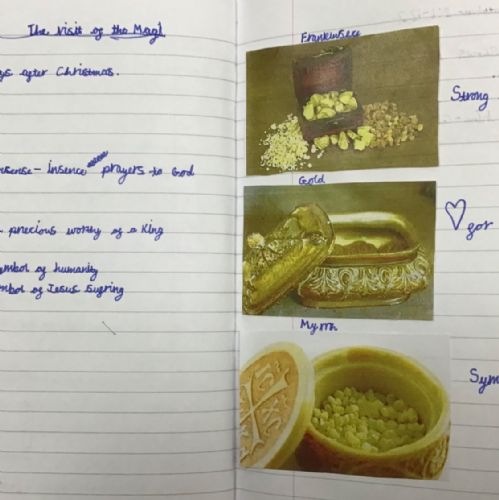 The visit of the Magi
ys after Christmas.
nsense - insence prayers to God
precious worthy of a King
ymbol of humanity
mbol of Jesus
Frankinsece
Strong
Gold
♡ gor
Myrrh
Sym